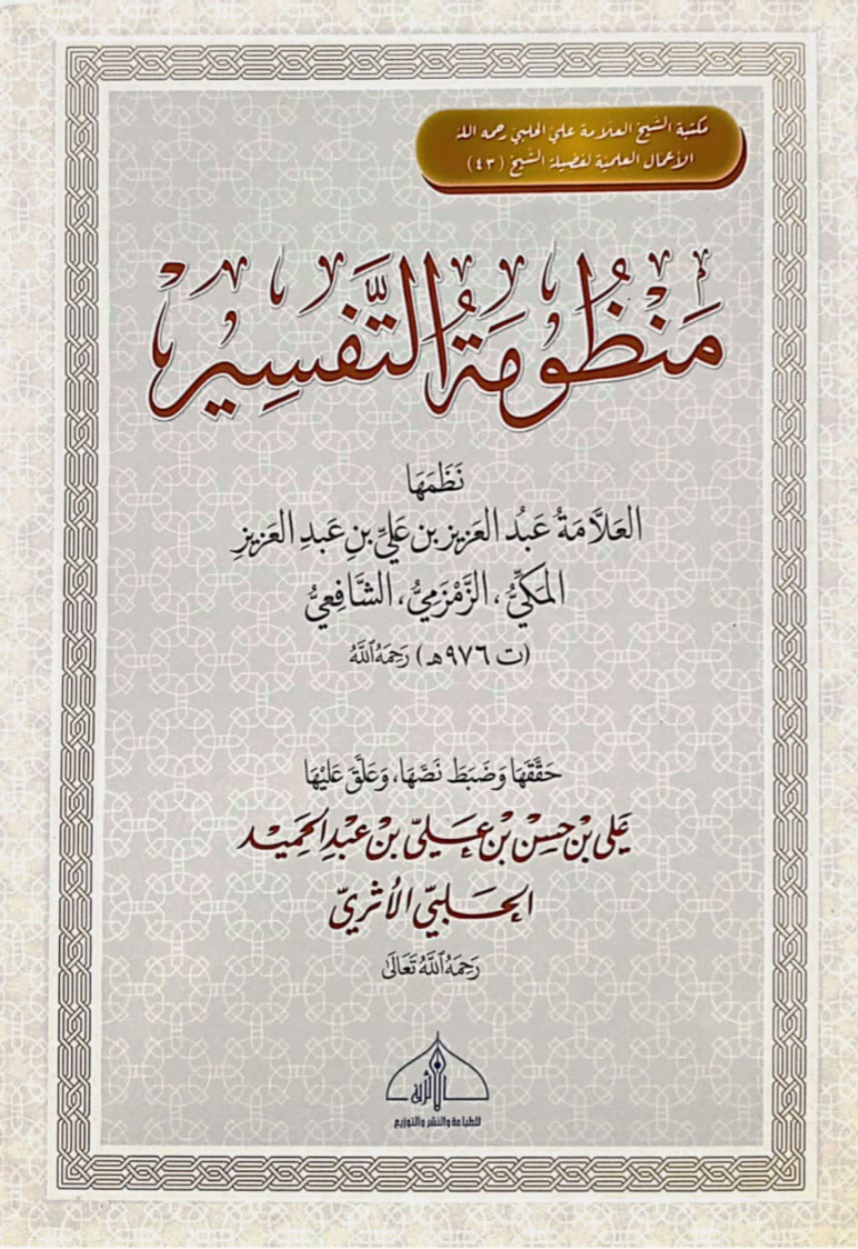 مكتبة الشيخ العلامة علي الحلبي رحمه الله
الأعمال العلمية لفضيلة الشيخ (٤٣)
مَنْظُومَةُ التَّفْسِيرِ
نَظَمَهَا
العَلَّامَةُ عَبْدُ العَزِيزِ بن عَلِيِّ بنِ عَبدِ العَزِيزِ
المَكِّيُّ، الزَّمْزَمِيُّ، الشَّافِعِيُّ
(ت ٩٧٦هـ) رَحِمَهُ ٱللَّهُ
حَقَّقَهَا وَضَبَطَ نَصَّهَا، وَعَلَّقَ عَلَيْهَا
عَلي بْن حَسَنْ بْن عَلِيّ بْن عَبْدِ الحَمِيْد
الحَلَبيّ الأَثَريّ
رَحِمَهُ ٱللَّهُ تَعَالَى
الأثرية
للطباعة والنشر والتوزيع